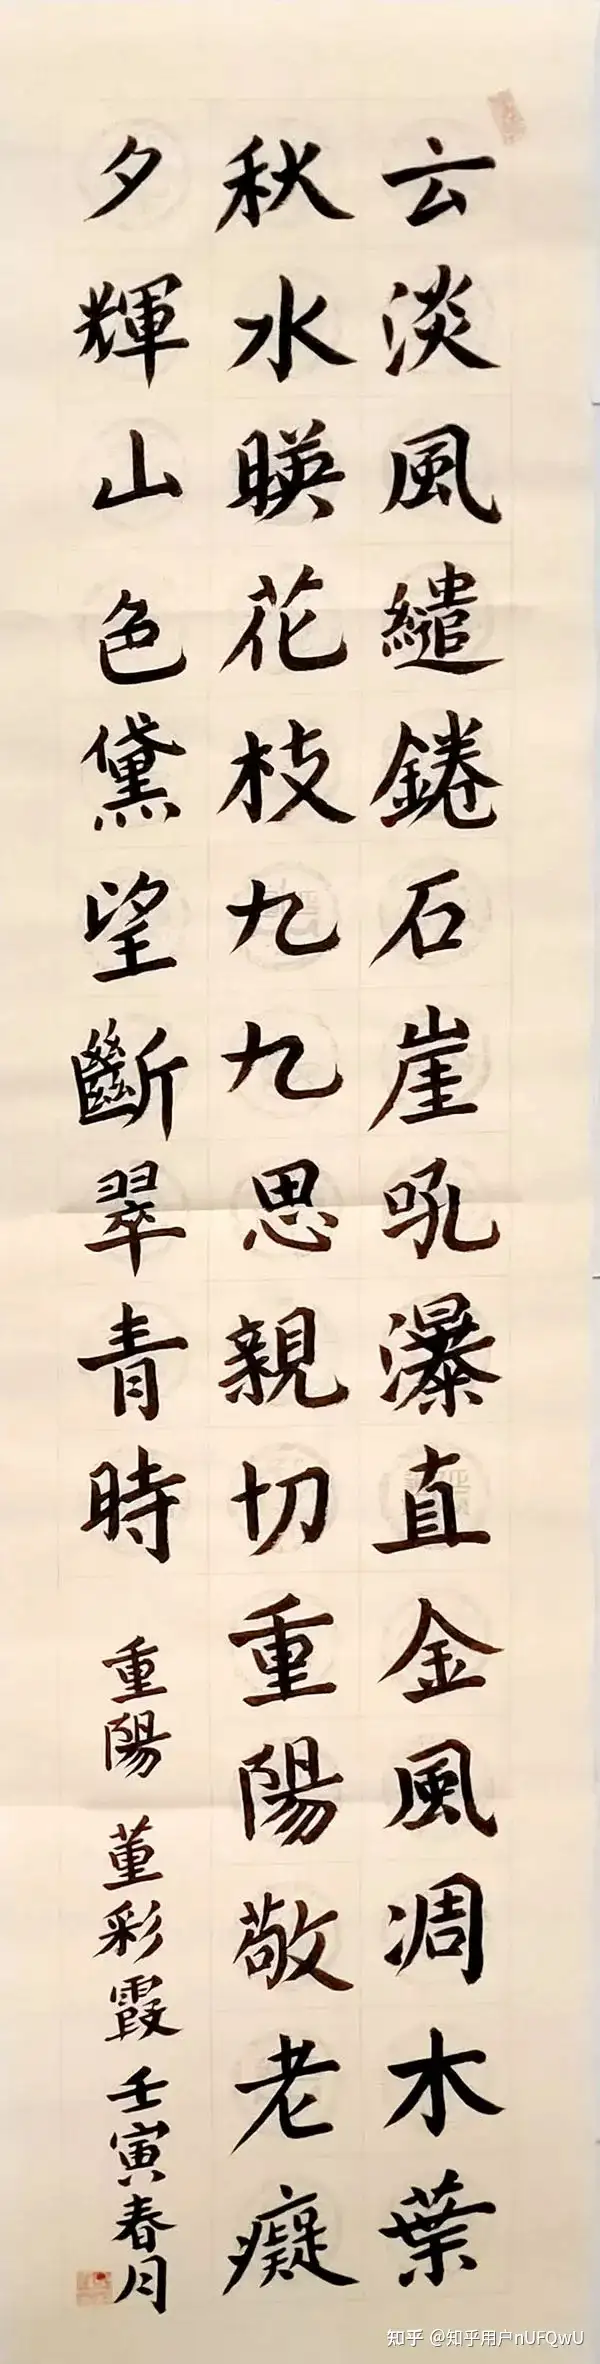 云淡風繾錈石崖吼瀑直金風凋木葉
秋水暎花枝九九思親切重陽敬老癡
夕輝山色黛望斷翠青時
重陽 董彩霞 壬寅春月
知乎 @知乎用户nUFQwU